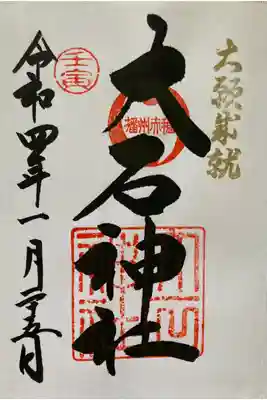 大願成就
大石神社
播州赤穂
大石神社
壬寅
令和四年一月二十五日